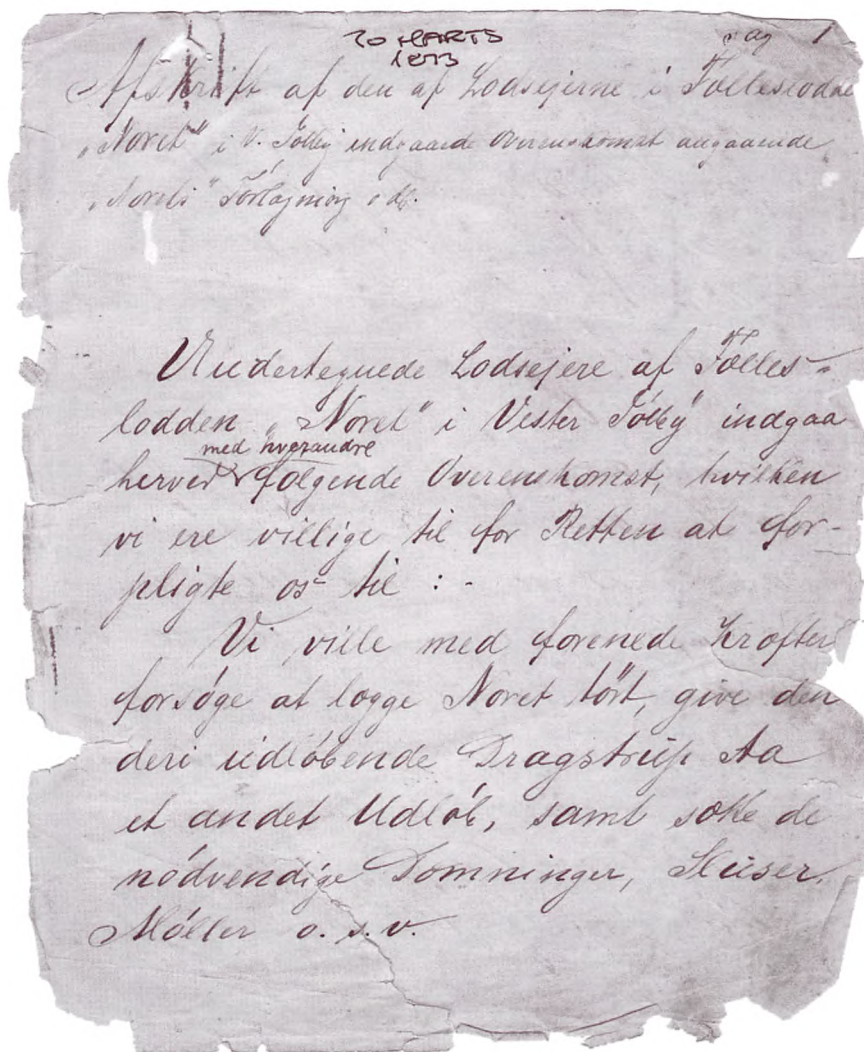 20 MARTS
1873
pag 1
Afskrift af den af Lodsejerne i Fælleslodde
"Noret" i V. Jølby indgaaede Overenskomst angaaende
"Norets" Tørlægning o.s.v.
Undertegnede Lodsejere af Fælles-
lodden "Noret" i Vester Jølby indgaa
med hverandre
herved følgende Overenskomst, hvilken
vi ere villige til for Retten at for-
pligte os til : -
Vi ville med forenede Kræfter
forsøge at lægge Noret tørt, give den
deri udløbende Dragstrup Aa
et andet Udløb, samt sætte de
nødvendige Dæmninger, Sluser,
Møller o. s. v.